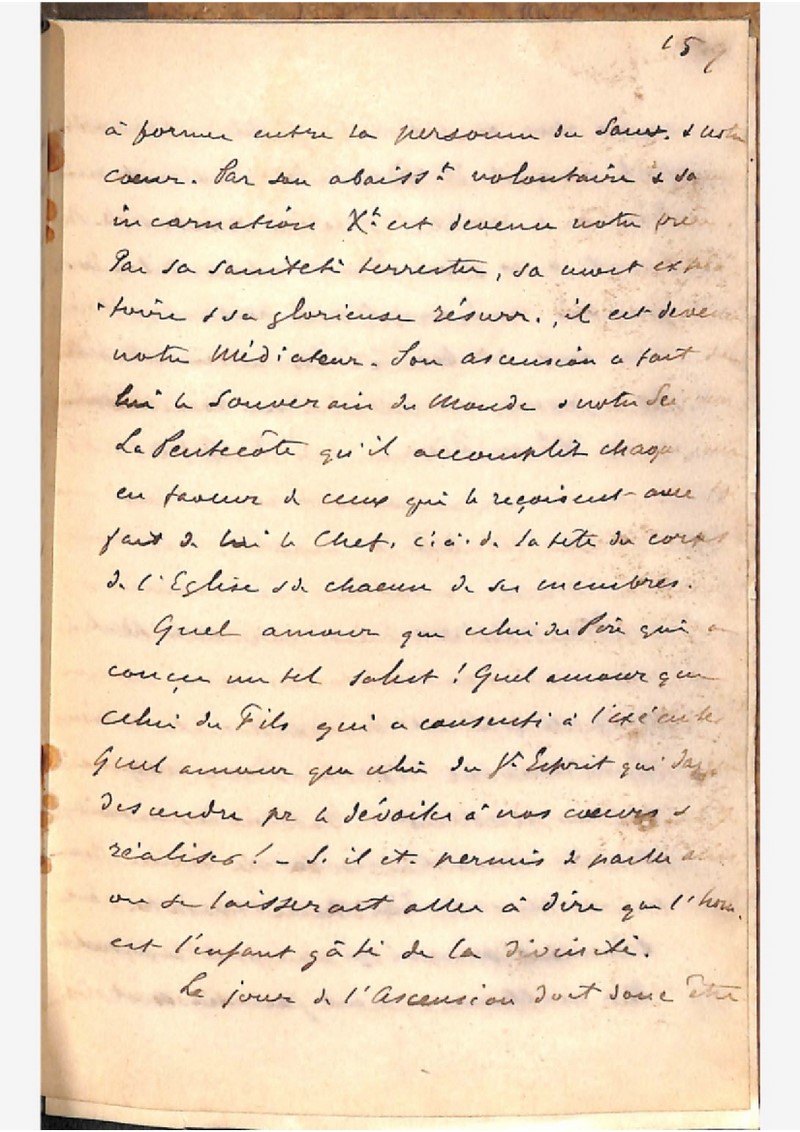 159
à former entre la personne du Sauv. & notre
cœur. Par son abaiss.t volontaire & sa
incarnation X.t est devenu notre frère
Par sa sainteté terrestre, sa mort expia
toire & sa glorieuse résurr., il est devenu
notre Médiateur. Son ascension a fait de
lui le Souverain du Monde & notre Sei
La Pentecôte qu'il accomplit chaque
en faveur de ceux qui le reçoivent avec
fait de lui le Chef, c.à.d. la tête du corps
de l'Eglise & de chacun de ses membres.
Quel amour que celui du Père qui a
conçu un tel salut! Quel amour que
celui du Fils qui a consenti à l'exécuter
Quel amour que celui du St Esprit qui daigne
descendre pr le dévoiler à nos cœurs &
réaliser! – S'il et. permis de parler ainsi
on se laisserait aller à dire que l'hom.
est l'enfant gâté de la divinité.
Le jour de l'Ascension doit donc être